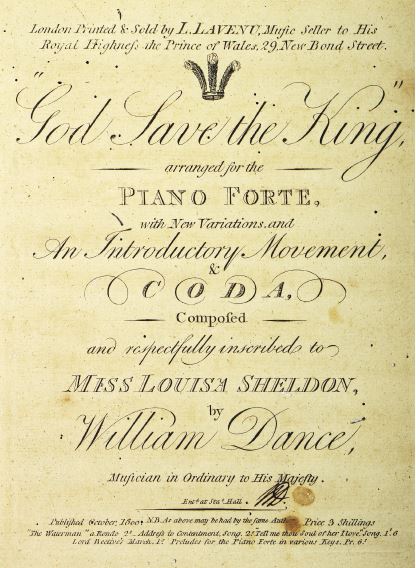 London Printed & Sold by L. LAVENU, Muſic Seller to His
Royal Highneſs the Prince of Wales, 29, New Bond Street.
"God Save the King",
arranged for the
PIANO FORTE,
with New Variations, and
An Introductory Movement,
&
CODA,
Compoſed
and reſpectfully inſcribed to
MISS LOUISA SHELDON,
by
William Dance,
Muſician in Ordinary to His Majeſty.
Entd. at Stars. Hall.
Publiſhed October, 1800. N.B. As above may be had by the ſame Author Price 3 Shillings
"The Waterman" a Rondo 2s. Addreſs to Contentment, Song, 2s. Tell me thou Soul of her I love, Song, 1s. 6
Lord March. 1s. Preludes for the Piano Forte in various Keys. Pr. 6s.